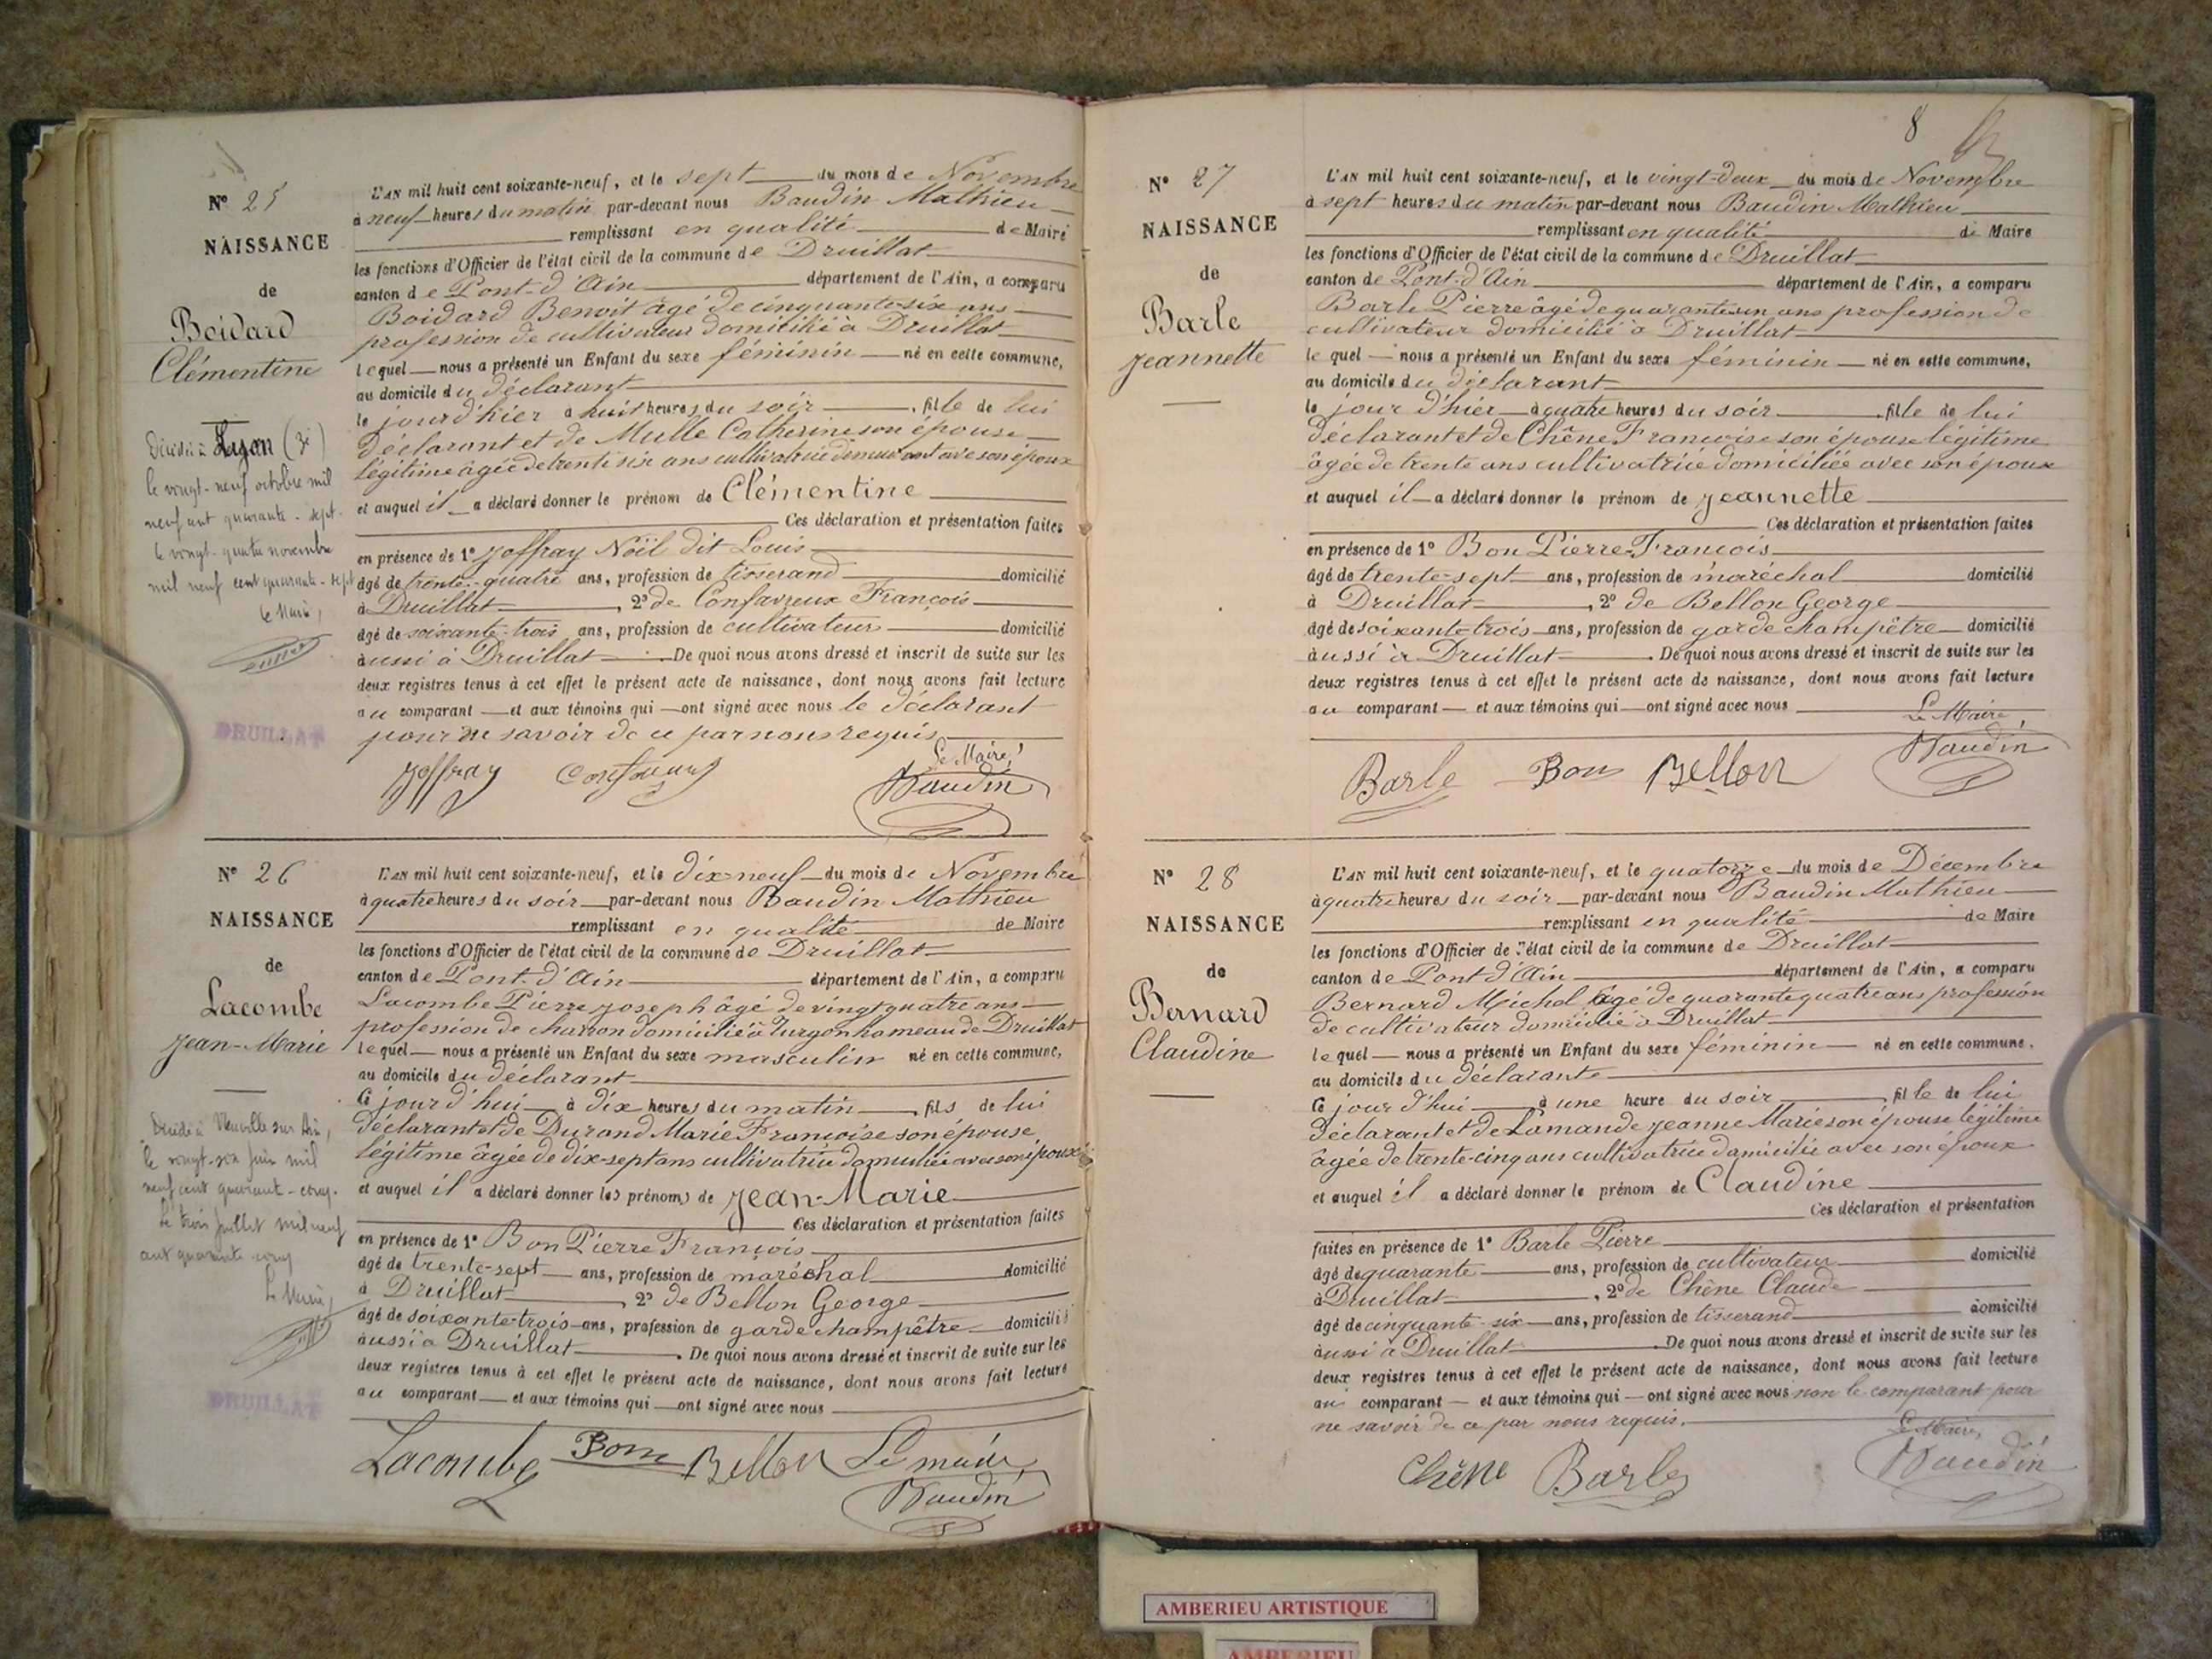 Nº 25
NAISSANCE
de
Boidard
Clémentine
Décédée à Lyon (3e)
le vingt-neuf octobre mil
neuf cent quarante-sept.
le vingt-quatre novembre
mil neuf cent quarante-sept
Le Maire,
DRUILLAT
L'AN mil huit cent soixante-neuf, et le sept du mois de Novembre
à neuf heures du matin par-devant nous Baudin Mathieu
remplissant en qualité de Maire
les fonctions d'Officier de l'état civil de la commune de Druillat
canton de Pont-d'Ain département de l'Ain, a comparu
Boidard Benoit âgé de cinquante-six ans
profession de cultivateur domicilié à Druillat
lequel nous a présenté un Enfant du sexe féminin né en cette commune,
au domicile du déclarant
le jour d'hier à huit heures du soir, fille de lui
déclarant et de Mulle Catherine son épouse
légitime âgée de trente six ans cultivatrice demeurant avec son époux
et auquel il a déclaré donner le prénom de Clémentine
Ces déclaration et présentation faites
en présence de 1º Joffray Noël dit Louis
âgé de trente-quatre ans, profession de tisserand domicilié
à Druillat, 2º de Confavreux François
âgé de soixante-trois ans, profession de cultivateur domicilié
aussi à Druillat. De quoi nous avons dressé et inscrit de suite sur les
deux registres tenus à cet effet le présent acte de naissance, dont nous avons fait lecture
au comparant et aux témoins qui ont signé avec nous le déclarant
pour ne savoir de ce par nous requis
Joffray Confavreux Le Maire,
Baudin
Nº 26
NAISSANCE
de
Lacombe
Jean-Marie
Décédé à Neuville sur Ain,
le vingt-six juin mil
neuf cent quarante-cinq.
Le trois Juillet mil neuf
cent quarante cinq
Le Maire,
DRUILLAT
L'AN mil huit cent soixante-neuf, et le dix neuf du mois de Novembre
à quatre heures du soir par-devant nous Baudin Mathieu
remplissant en qualité de Maire
les fonctions d'Officier de l'état civil de la commune de Druillat
canton de Pont-d'Ain département de l'Ain, a comparu
Lacombe Pierre Joseph âgé de vingt quatre ans
profession de charron domicilié à Turgon hameau de Druillat
lequel nous a présenté un Enfant du sexe masculin né en cette commune,
au domicile du déclarant
Ce jour d'hui à dix heures du matin, fils de lui
déclarant et de Durand Marie Françoise son épouse
légitime âgée de dix-sept ans cultivatrice domiciliée avec son époux
et auquel il a déclaré donner les prénoms de Jean-Marie
Ces déclaration et présentation faites
en présence de 1º Bon Pierre François
âgé de trente-sept ans, profession de maréchal domicilié
à Druillat, 2º de Bellon George
âgé de soixante-trois ans, profession de garde champêtre domicilié
aussi à Druillat. De quoi nous avons dressé et inscrit de suite sur les
deux registres tenus à cet effet le présent acte de naissance, dont nous avons fait lecture
au comparant et aux témoins qui ont signé avec nous
Lacombe Bon Bellon Le maire,
Baudin
8
Nº 27
NAISSANCE
de
Barle
Jeannette
L'AN mil huit cent soixante-neuf, et le vingt-deux du mois de Novembre
à sept heures du matin par-devant nous Baudin Mathieu
remplissant en qualité de Maire
les fonctions d'Officier de l'état civil de la commune de Druillat
canton de Pont-d'Ain département de l'Ain, a comparu
Barle Pierre âgé de quarante un ans profession de
cultivateur domicilié à Druillat
le quel nous a présenté un Enfant du sexe féminin né en cette commune,
au domicile du déclarant
le jour d'hier à quatre heures du soir, fille de lui
déclarant et de Chêne Françoise son épouse légitime
âgée de trente ans cultivatrice domiciliée avec son époux
et auquel il a déclaré donner le prénom de Jeannette
Ces déclaration et présentation faites
en présence de 1º Bon Pierre-François
âgé de trente-sept ans, profession de maréchal domicilié
à Druillat, 2º de Bellon George
âgé de soixante-trois ans, profession de garde champêtre domicilié
aussi à Druillat. De quoi nous avons dressé et inscrit de suite sur les
deux registres tenus à cet effet le présent acte de naissance, dont nous avons fait lecture
au comparant et aux témoins qui ont signé avec nous
Le Maire,
Barle Bon Bellon Baudin
Nº 28
NAISSANCE
de
Bernard
Claudine
L'AN mil huit cent soixante-neuf, et le quatorze du mois de Décembre
à quatre heures du soir par-devant nous Baudin Mathieu
remplissant en qualité de Maire
les fonctions d'Officier de l'état civil de la commune de Druillat
canton de Pont d'Ain département de l'Ain, a comparu
Bernard Michel âgé de quarante quatre ans profession
de cultivateur domicilié à Druillat
lequel nous a présenté un Enfant du sexe féminin né en cette commune,
au domicile du déclarant
Ce jour d'hui à une heure du soir, fille de lui
déclarant et de Lamande Jeanne Marie son épouse légitime
âgée de trente-cinq ans cultivatrice domiciliée avec son époux
et auquel il a déclaré donner le prénom de Claudine
Ces déclaration et présentation
faites en présence de 1º Barle Pierre
âgé de quarante ans, profession de cultivateur domicilié
à Druillat, 2º de Chêne Claude
âgé de cinquante-six ans, profession de tisserand domicilié
aussi à Druillat. De quoi nous avons dressé et inscrit de suite sur les
deux registres tenus à cet effet le présent acte de naissance, dont nous avons fait lecture
au comparant et aux témoins qui ont signé avec nous non le comparant pour
ne savoir de ce par nous requis.
Le Maire,
Chêne Barle Baudin
AMBERIEU ARTISTIQUE
AMBERIEU